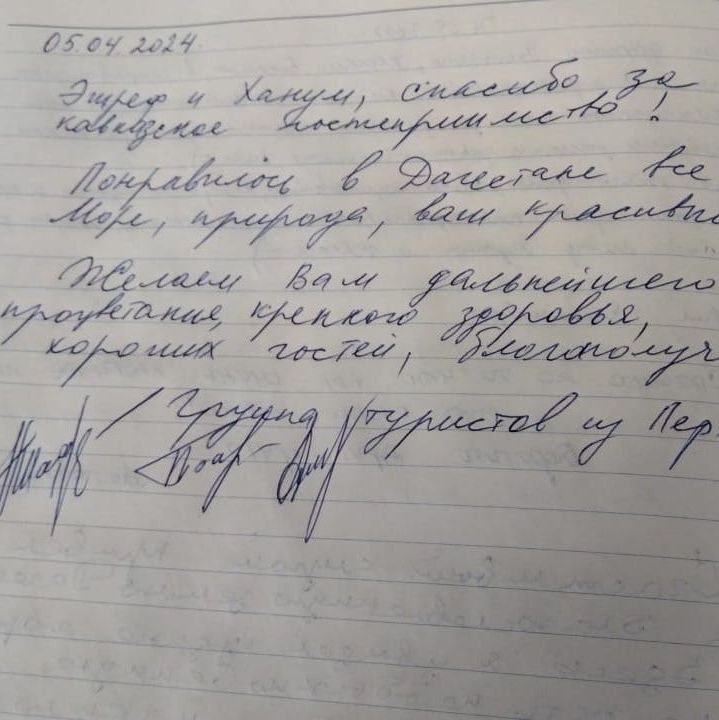 05.04.2024.
Эшреф и Ханум, спасибо за
кавказское гостеприимство!
Понравилось в Дагестане все
Море, природа, ваш красивы
Желаем Вам дальнейшего
процветания, крепкого здоровья,
хороших гостей, благополуч
Группа туристов из Пер